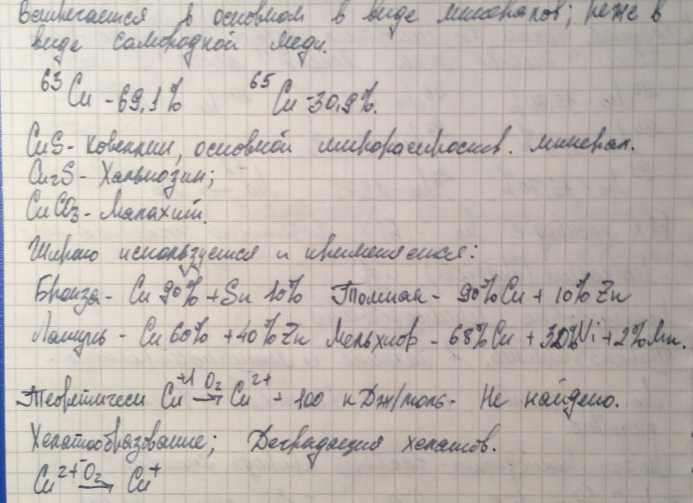 Встречается в основном в виде минералов; реже в
виде самородной меди.
⁶³Cu - 69,1% ⁶⁵Cu - 30,9%.
CuS - Ковеллин, основной минерал.
Cu₂S - Халькозин;
CuCO₃ - Малахит.
Широко используется и применяется:
Бронза - Cu 90% + Sn 10% Томпак - 90% Cu + 10% Zn
Латунь - Cu 60% + 40% Zn Мельхиор - 68% Cu + 30% Ni + 2% Mn.
Теоретически Cu⁺¹ O₂→ Cu²⁺ + 100 кДж/моль - Не найдено.
Хелатообразование; Деградация хелатов.
Cu²⁺ -O₂→ Cu⁺